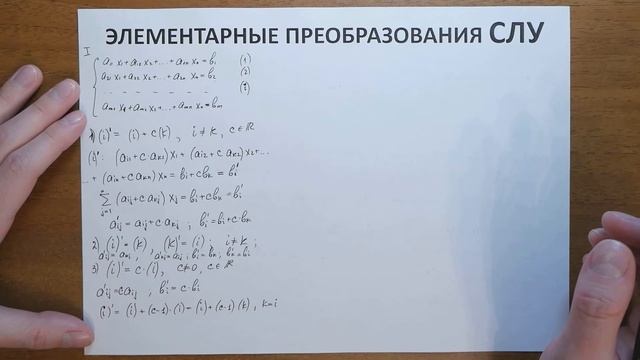 ЭЛЕМЕНТАРНЫЕ ПРЕОБРАЗОВАНИЯ СЛУ
I
a₁₁ x₁ + a₁₂ x₂ + ... + a₁ₙ xₙ = b₁ (1)
a₂₁ x₁ + a₂₂ x₂ + ... + a₂ₙ xₙ = b₂ (2)
– – – – – – –
aₘ₁ x₁ + aₘ₂ x₂ + ... + aₘₙ xₙ = bₘ
1) (i)' = (i) + c(k), i ≠ k, c ∈ ℝ
(i)': (aᵢ₁ + c aₖ₁) x₁ + (aᵢ₂ + c aₖ₂) x₂ + ...
... + (aᵢₙ + c aₖₙ) xₙ = bᵢ + c bₖ = bᵢ'
∑ⱼ₌₁ⁿ (aᵢⱼ + c aₖⱼ) xⱼ = bᵢ + c bₖ = bᵢ'
a'ᵢⱼ = aᵢⱼ + c aₖⱼ ; bᵢ' = bᵢ + c·bₖ
2) (i)' = (k), (k)' = (i); i ≠ k;
3) (i)' = c·(i), c ≠ 0, c ∈ ℝ
a'ᵢⱼ = c aᵢⱼ ; b'ᵢ = c·bᵢ
(i)' = (i) + (c-1)·(i) = (i) + (c-1)(k), k = i